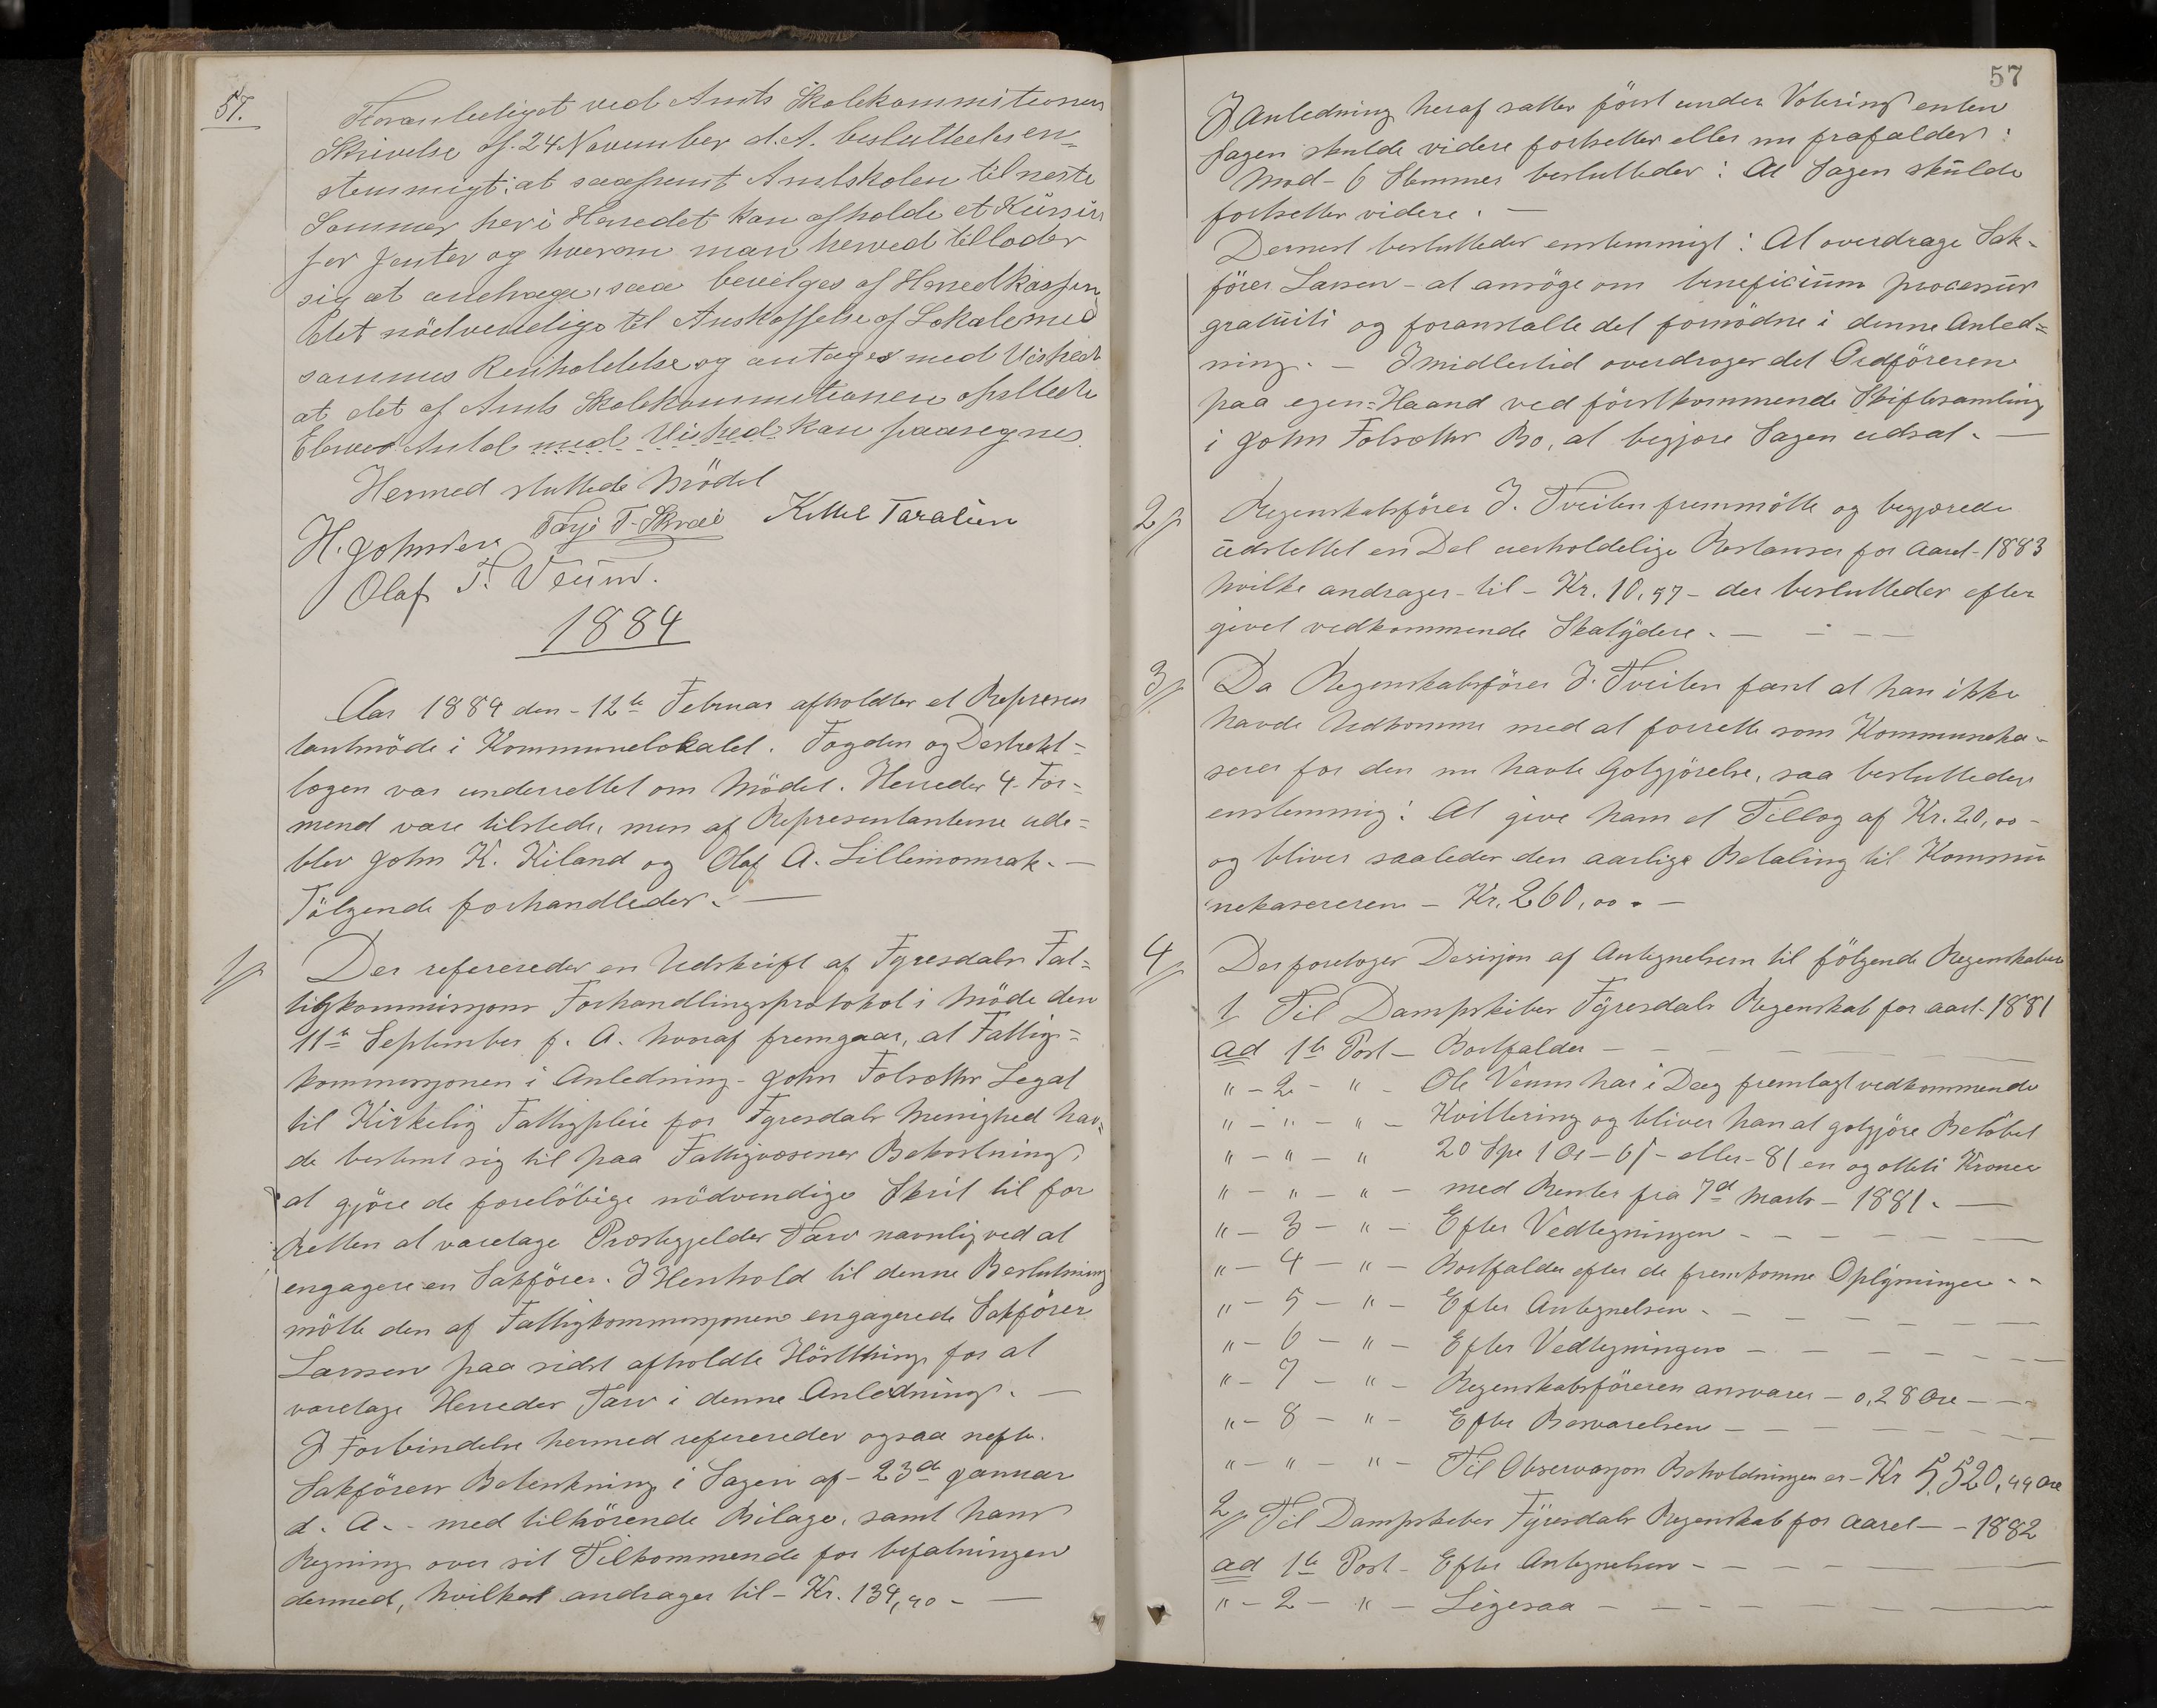 57.
Foranlediget ved Amts Skolekommitionens
Skrivelse af 24 November d. A. besluttedes en=
stemmigt: at saafremt Amtskolen til neste
Sommer her i Herredet kan afholde et Kursus
for Jenter og hvorom man herved tillader
sig at andrage, saa bevilges af Herredkassen
det nödvendige til Anskaffelse af Lokale med
sammes Renholdelse og antages med Vished
at det af Amts Skolekommitionen opsatte
Elevers Antal med Vished kan paaregnes.
Hermed sluttede Mödet
H. Johnsen Tarje T. Skræi Kittel Taraldsen
Olaf T. Veum.
1884
Aar 1884 den - 12te Februar afholdtes et Represen
tantmöde i Kommunelokalet. Fogden og Destrekt=
lægen var underrettet om Mödet. Herredes 4. For=
mend vare tilstede, men af Representanterne ude=
blev John K. Kiland og Olaf A. Lillemomrak. —
Fölgende forhandledes. —
1/ Der refereredes en Udskrift af Fyresdals Fat=
tigkommissjons Forhandlingsprotokol i Möde den
11te September f. A. hvoraf fremgaar, at Fattig=
kommissjonen i Anledning - John Folsæths Legat
til Kirkelig Fattigpleie for Fyresdals Menighed hav=
de bestemt sig til paa Fattigvæsenets Bekostning
at gjöre de forelöbige nödvendige Skrit til for
Retten at varetage Præstegjeldes Tarv navnlig ved at
engagere en Sakförer. I Henhold til denne Beslutning
mötte den af Fattigkommissjonen engagerede Sakförer
Larssen paa sidst afholdte Hösttthing for at
varetage Herredes Tarv i denne Anledning. —
I Forbindelse hermed refereredes ogsaa nefte.
Sakförers Betenkning i Sagen af - 23de Januar
d. A. - med tilhörende Bilage, samt hans
Regning over sit Tilkommende for befatningen
dermed, hvilket andrager til - Kr. 134,40 - —
57
I Anledning heraf sattes först under Votering enten
Sagen skulde videre fortsettes eller nu frafaldes:
Mod - 6 Stemmer besluttedes: At Sagen skulde
fortsettes videre. —
Dernest besluttedes enstemmigt: At overdrage Sak-
förer Larsen - at ansöge om beneficium processus
gratuiti og foranstalte det fornödne i denne Anled=
ning. — Imidlertid overdrages det Ordföreren
paa egen=Haand ved förstkommende Skiftesamling
i John Folsæths Bo, at begjære Sagen udsat. —
2/ Regenskabsförer J. Tveiten fremmötte og begjærede
udslettet en Del uerholdelige Restanser for Aaret - 1883
hvilke andrager - til - Kr. 10,97 - der besluttedes efter
givet vedkommende Skatydere. — - — —
3/ Da Regenskabsförer J. Tveiten fant at han ikke
havde Udkomme med at forrette som Kommuneka-
serer for den nu havte Gotgjörelse, saa besluttedes
enstemmig: At give ham et Tillæg af Kr. 20,00 -
og bliver saaledes den aarlige Betaling til Kommu
nekasereren - Kr. 260,00. —
4/ Der foretoges Desisjon af Antegnelsern til fölgende Regenskaber
1/ Til Dampskibet Fyresdals Regenskab for aaret - 1881
ad 1te Post - Bortfalder — — — — —
" - 2 - " - Ole Veum har i Dag fremlagt vedkommende
" - " - " - Kvittering og bliver han at gotgjöre Belöbet
" - " - " 20 Spe 1 Or - 6 / - eller - 81 en og otteti Kroner
" - " - " - med Renter fra 7d Marts - 1881. —
" - 3 - " - Efter Vedtegningen — — — — —
" - 4 - " - Bortfalder efter de fremkomne Oplysninger - -
" - 5 - " - Efter Antegnelsen. — — — — —
" - 6 " - Efter Vedtegningen — — — — —
" - 7 - " - Regenskabsföreren ansvarer - 0,28 Öre — —
" - 8 - " - Efter Besvarelsen — — — — —
" - " - " - Til Observasjon Beholdningen er - Kr 5,520,44 Öre
2/ Til Dampskibet Fyresdals Regenskab for Aaret — - 1882
ad 1te Post - Efter Antegnelsen — — — —
" - 2 - " - Ligesaa — — — — —